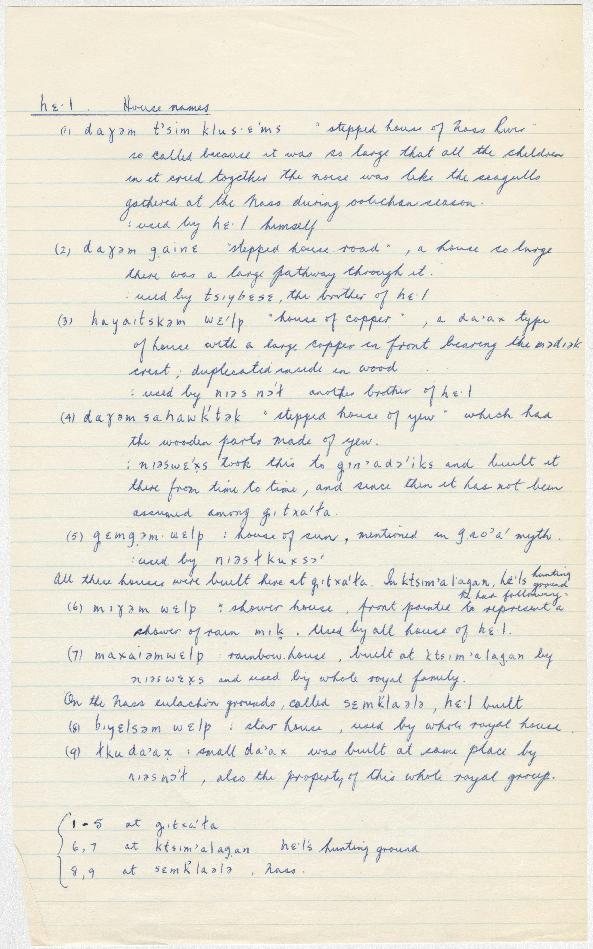 hɛ·l . House names
(1) daɣəm t'sim klus·ɛ'ms "stepped house of Nass River"
so called because it was so large that all the children
in it cried together the noise was like the seagulls
gathered at the Nass during oolichan season.
: used by hɛ·l himself
(2) daɣəm g̣ainɛ "stepped house road", a house so large
there was a large pathway through it.
: used by tsiybɛsɛ, the brother of hɛ·l
(3) hayaitskəm wɛ'lp "house of copper", a da'ax type
of house with a large copper in front bearing the mədiək
crest; duplicated inside in wood
: used by niəs nə't another brother of hɛ·l
(4) daɣəm sahawk'tək "stepped house of yew" which had
the wooden parts made of yew.
: niəswɛ'xs took this to gin'adə'iks and built it
there from time to time, and since then it has not been
assumed among g̣itxa'ɫa.
(5) gɛmg̣əm·wɛlp : house of sun, mentioned in g̣ao'a' myth.
: used by niəsɫkuxsə'
All these houses were built here at g̣itxa'ɫa. In ktsim'alagan, hɛ'ls hunting ground
he has following:
(6) miɣəm wɛlp : shower house, front painted to represent a
shower of rain mik. Used by all house of hɛ·l.
(7) maxaiəmwɛlp : rainbow house, built at ktsim'alagan by
niəswɛxs and used by whole royal family.
On the Nass eulachon grounds, called sɛmk'laələ, hɛ·l built
(8) biyɛlsəm wɛlp : star house, used by whole royal house.
(9) ɫku da'ax : small da'ax was built at same place by
niəs nə't, also the property of this whole royal group.
1-5 at g̣itxa'ɫa
6,7 at ktsim'alagan hɛ·l's hunting ground
8,9 at sɛmk'laələ, Nass.